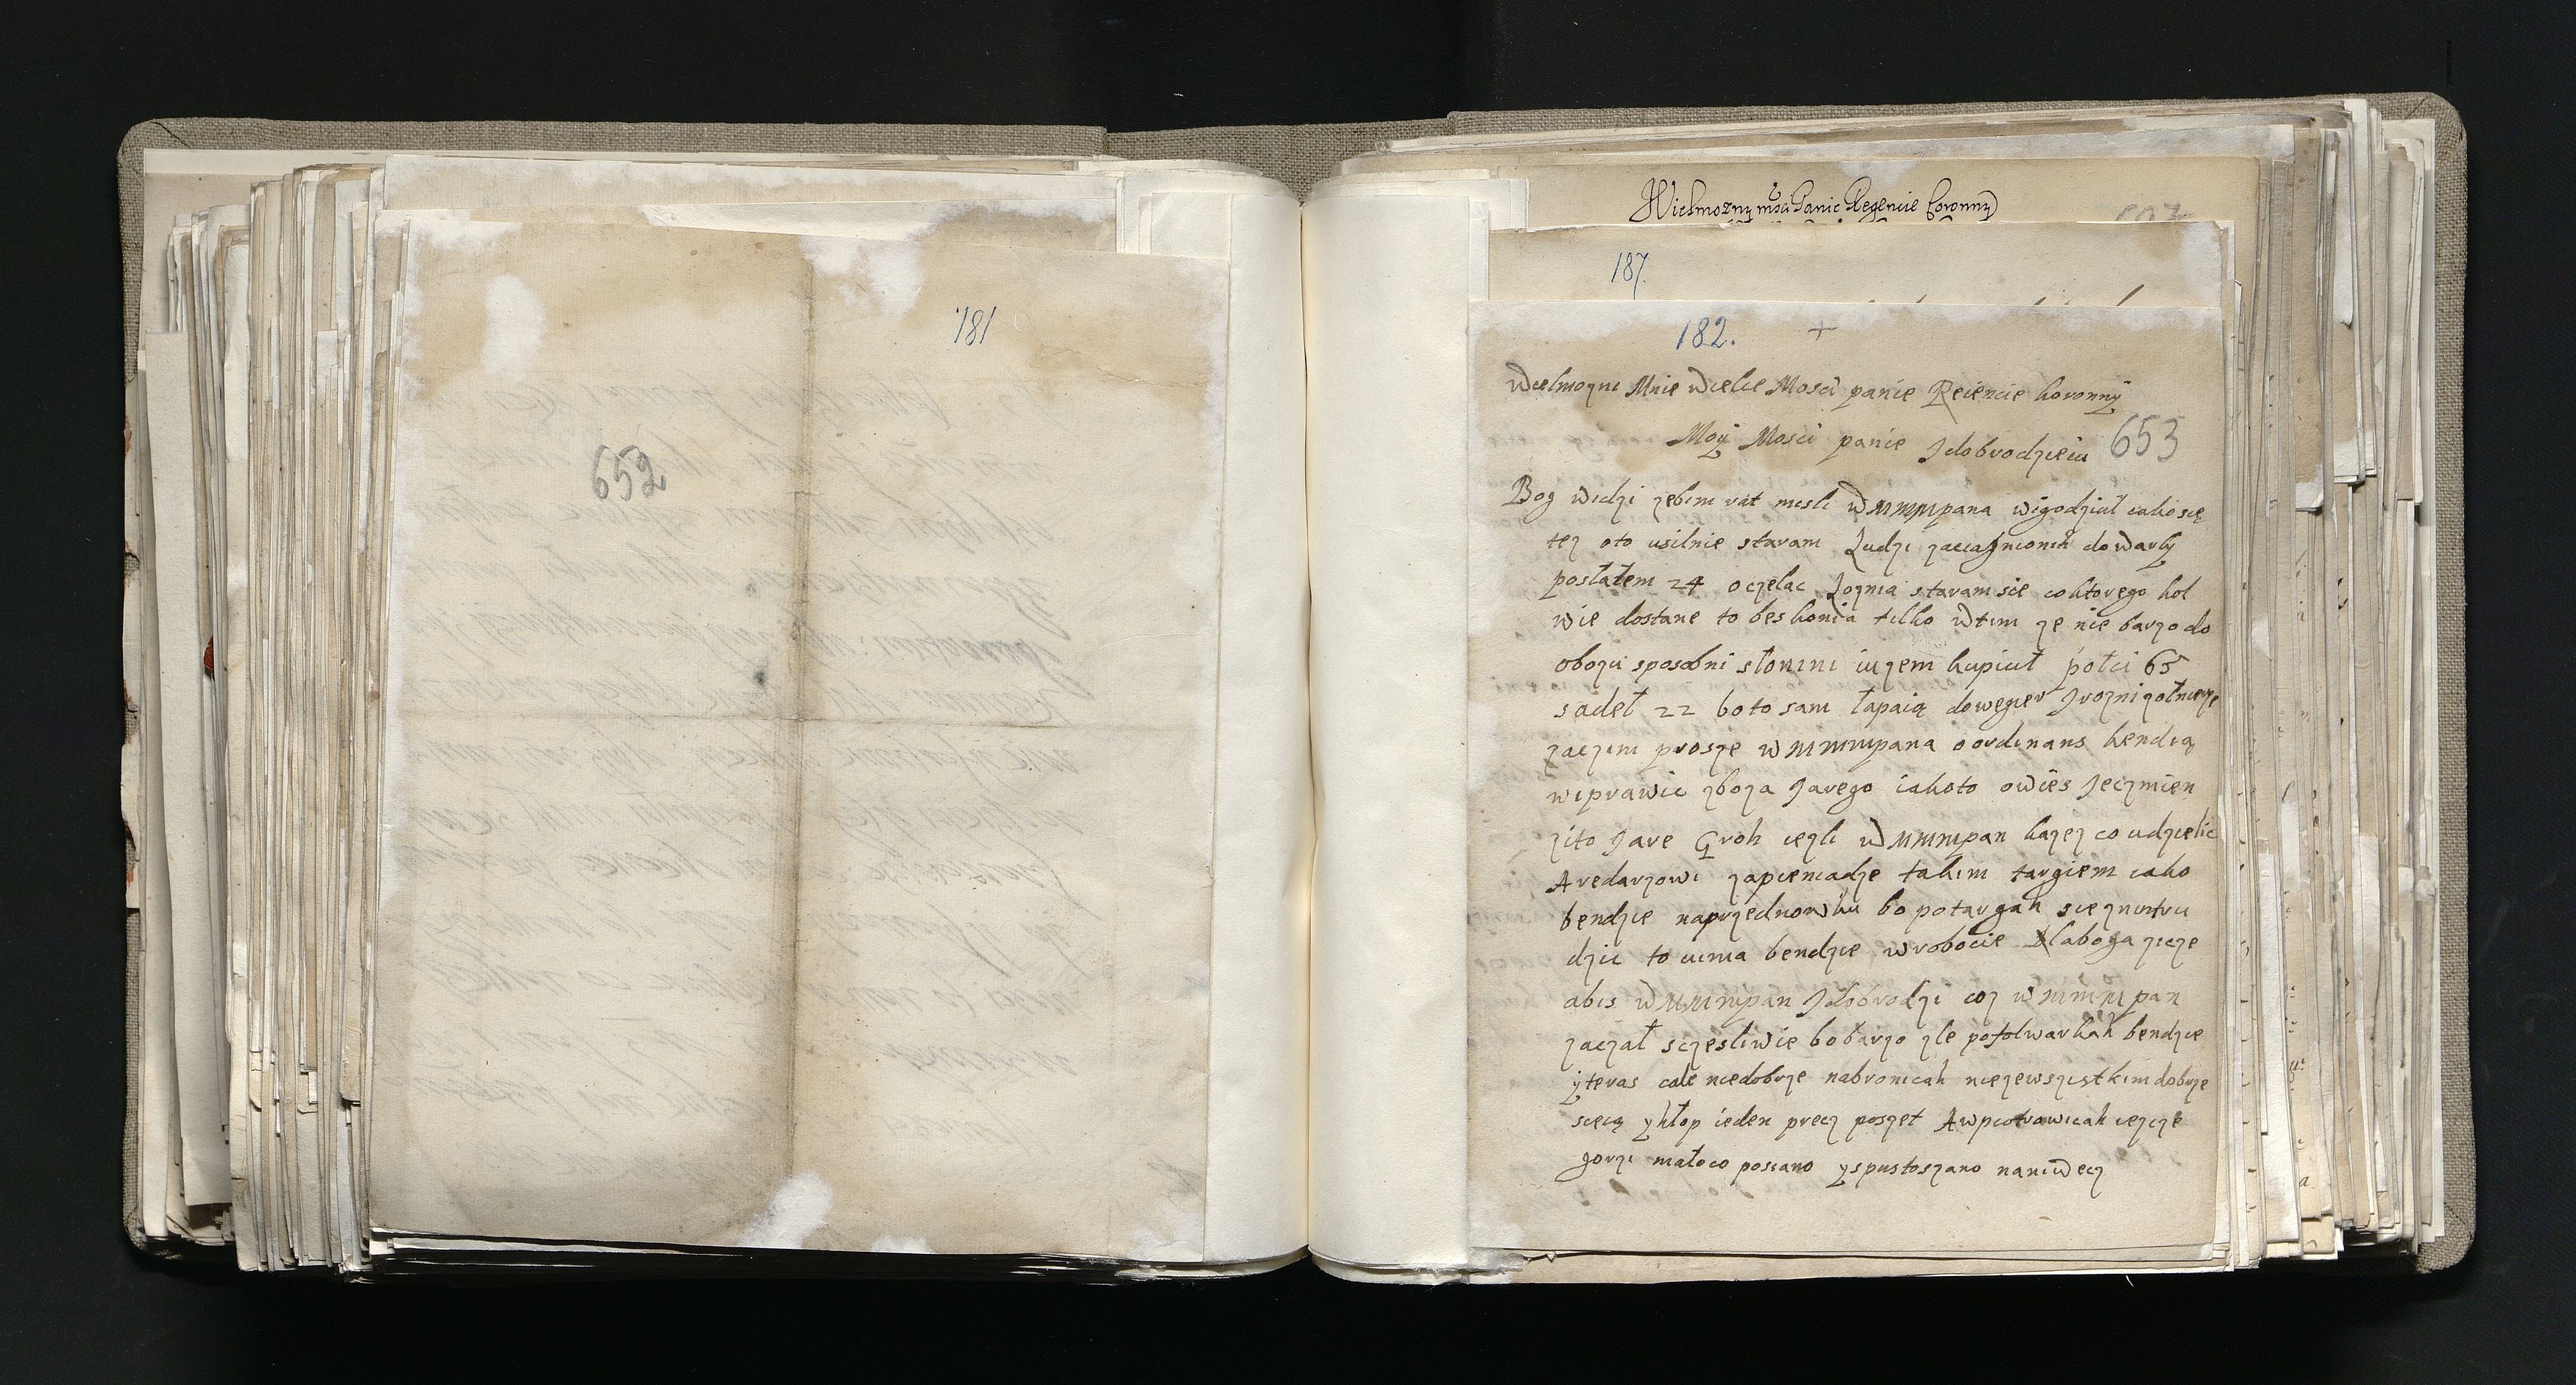 181
652
Wielmozny msci Panie Regencie Coronny
187.
182. +
Wielmozni Mnie Wielce Mosci panie Reiencie koronny
Moÿ Mosci panie Jdobrodzieiu 653
Bog widzi zebim rat misli WMMMpana wigodziul iako sie
tez oto usilnie staram Ludzi zaciagnionih do Warky
poslałem 24 oczelac Lozma staram sie co ktorego kol
wie dostane to bes konia tilko Wtim ze nie barzo do
obozu sposobni słonini iuzem kupiuł połci 65
sadeł 22 bo to sam łapaią doweger Jrozni zołnierze
zaczim prosze WMMMpana o ordinans kendią
wiprawic zboza Jarego iakoto owies Jeczmien
zito Jare Groh iezli WMMMpan kazez co udzielic
Aredarzowi zapieniadze takim targiem iako
bendzie naprzednowku bo potargah sie znim tru
dzic to zima bendzie w robocie Dlaboga zicze
abis WMMMpan Jdobrodzi coz WMMMpan
zaczał sczesliwie bo barzo zle pofolwarkah bendzie
ÿ teras cale niedobrze nabronicah niezewszistkim dobrze
sieią ÿ hłop ieden precz poszet A wpiotrawicah iezcze
gorzi małoco posiano ÿ spustoszano naniwecz